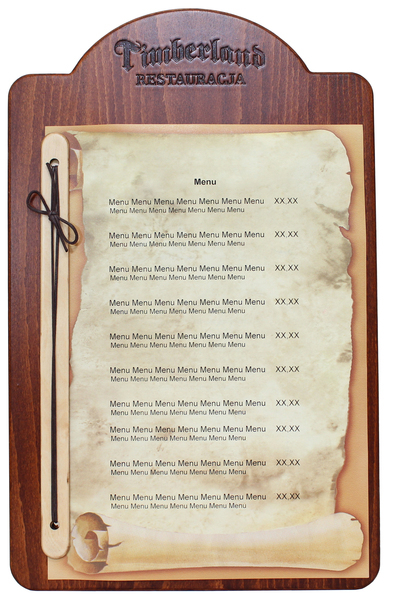 Timberland
RESTAURACJA
Menu
Menu Menu Menu Menu Menu Menu Menu XX.XX
Menu Menu Menu Menu Menu Menu Menu
Menu Menu Menu Menu Menu Menu Menu XX.XX
Menu Menu Menu Menu Menu Menu Menu
Menu Menu Menu Menu Menu Menu Menu XX.XX
Menu Menu Menu Menu Menu Menu Menu
Menu Menu Menu Menu Menu Menu Menu XX.XX
Menu Menu Menu Menu Menu Menu Menu
Menu Menu Menu Menu Menu Menu Menu XX.XX
Menu Menu Menu Menu Menu Menu Menu
Menu Menu Menu Menu Menu Menu Menu XX.XX
Menu Menu Menu Menu Menu Menu Menu
Menu Menu Menu Menu Menu Menu Menu XX.XX
Menu Menu Menu Menu Menu Menu Menu
Menu Menu Menu Menu Menu Menu Menu XX.XX
Menu Menu Menu Menu Menu Menu Menu
Menu Menu Menu Menu Menu Menu Menu XX.XX
Menu Menu Menu Menu Menu Menu Menu
Menu Menu Menu Menu Menu Menu Menu XX.XX
Menu Menu Menu Menu Menu Menu Menu